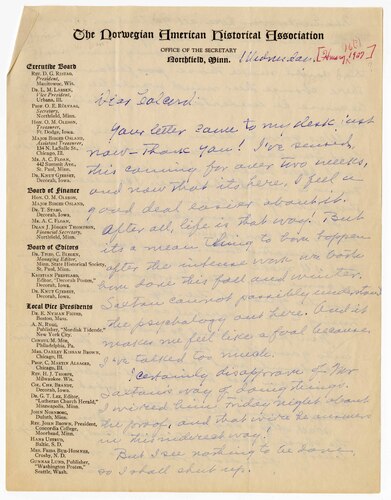 The Norwegian American Historical Association
OFFICE OF THE SECRETARY
Northfield, Minn.
Wednesday,
Executive Board
REV. D. G. RISTAD,
President,
Manitowoc, Wis.
DR. L. M. LARSON,
Vice President,
Urbana, Ill.
PROF. O. E. RÖLVAAG,
Secretary,
Northfield, Minn.
HON. O. M. OLESON,
Treasurer,
Ft. Dodge, Iowa.
MAJOR BIRGER OSLAND,
Assistant Treasurer,
134 N. LaSalle St.,
Chicago, Ill.
MR. A. C. FLOAN,
St. Paul, Minn.
DR. KNUT GJERSET,
Decorah, Iowa.
Board of Finance
HON. O. M. OLESON,
MAJOR BIRGER OSLAND,
DR. T. STABO,
Decorah, Iowa.
MR. A. C. FLOAN,
DEAN J. JØRGEN THOMPSON,
Financial Secretary,
Northfield, Minn.
Board of Editors
DR. THEO. C. BLEGEN,
Managing Editor,
Minn. State Historical Society,
St. Paul, Minn.
KRISTIAN PRESTGARD,
Editor, "Decorah Posten,"
Decorah, Iowa.
DR. KNUT GJERSET,
Decorah, Iowa.
Local Vice Presidents
Boston, Mass.
A. N. RYGG,
Publisher, "Nordisk Tidende,"
New York City.
Philadelphia, Pa.
MRS. OAKLEY
Chicago, Ill.
PROF. C. MARTIN ALSAGER,
Chicago, Ill.
REV. H. J. THORPE,
Milwaukee, Wis.
CHR. CHR. BRANDT,
Decorah, Iowa.
DR. G. T. LEE, Editor
"Lutheran Church Herald,"
Minneapolis, Minn.
JOHN NORBORG,
Duluth, Minn.
REV. JOHN BROWN, President,
Concordia College,
Moorhead, Minn.
HANS USTRUD,
Baltic, S. D.
Crosby, N. D.
GUNNAR LUND, Publisher,
"Washington Posten,"
Seattle, Wash.
Dear Colcord:
Your letter came to my desk just
now – Thank you! I've sensed
this coming for over two weeks,
and now that its here, I feel a
good deal easier about it.
After all, life is that way! But
its a mean thing to have happen
after the intense work we both
have done this fall and winter.
Saxton cannot possibly understand
the psychology out here. And it
makes me feel like a fool because
I've talked too much.
I certainly disapprove of Mr
Saxton's way of doing things.
I wired him Friday night about
the proof, and that
in this indirect way!
But I see nothing to be done,
so I shall shut up.